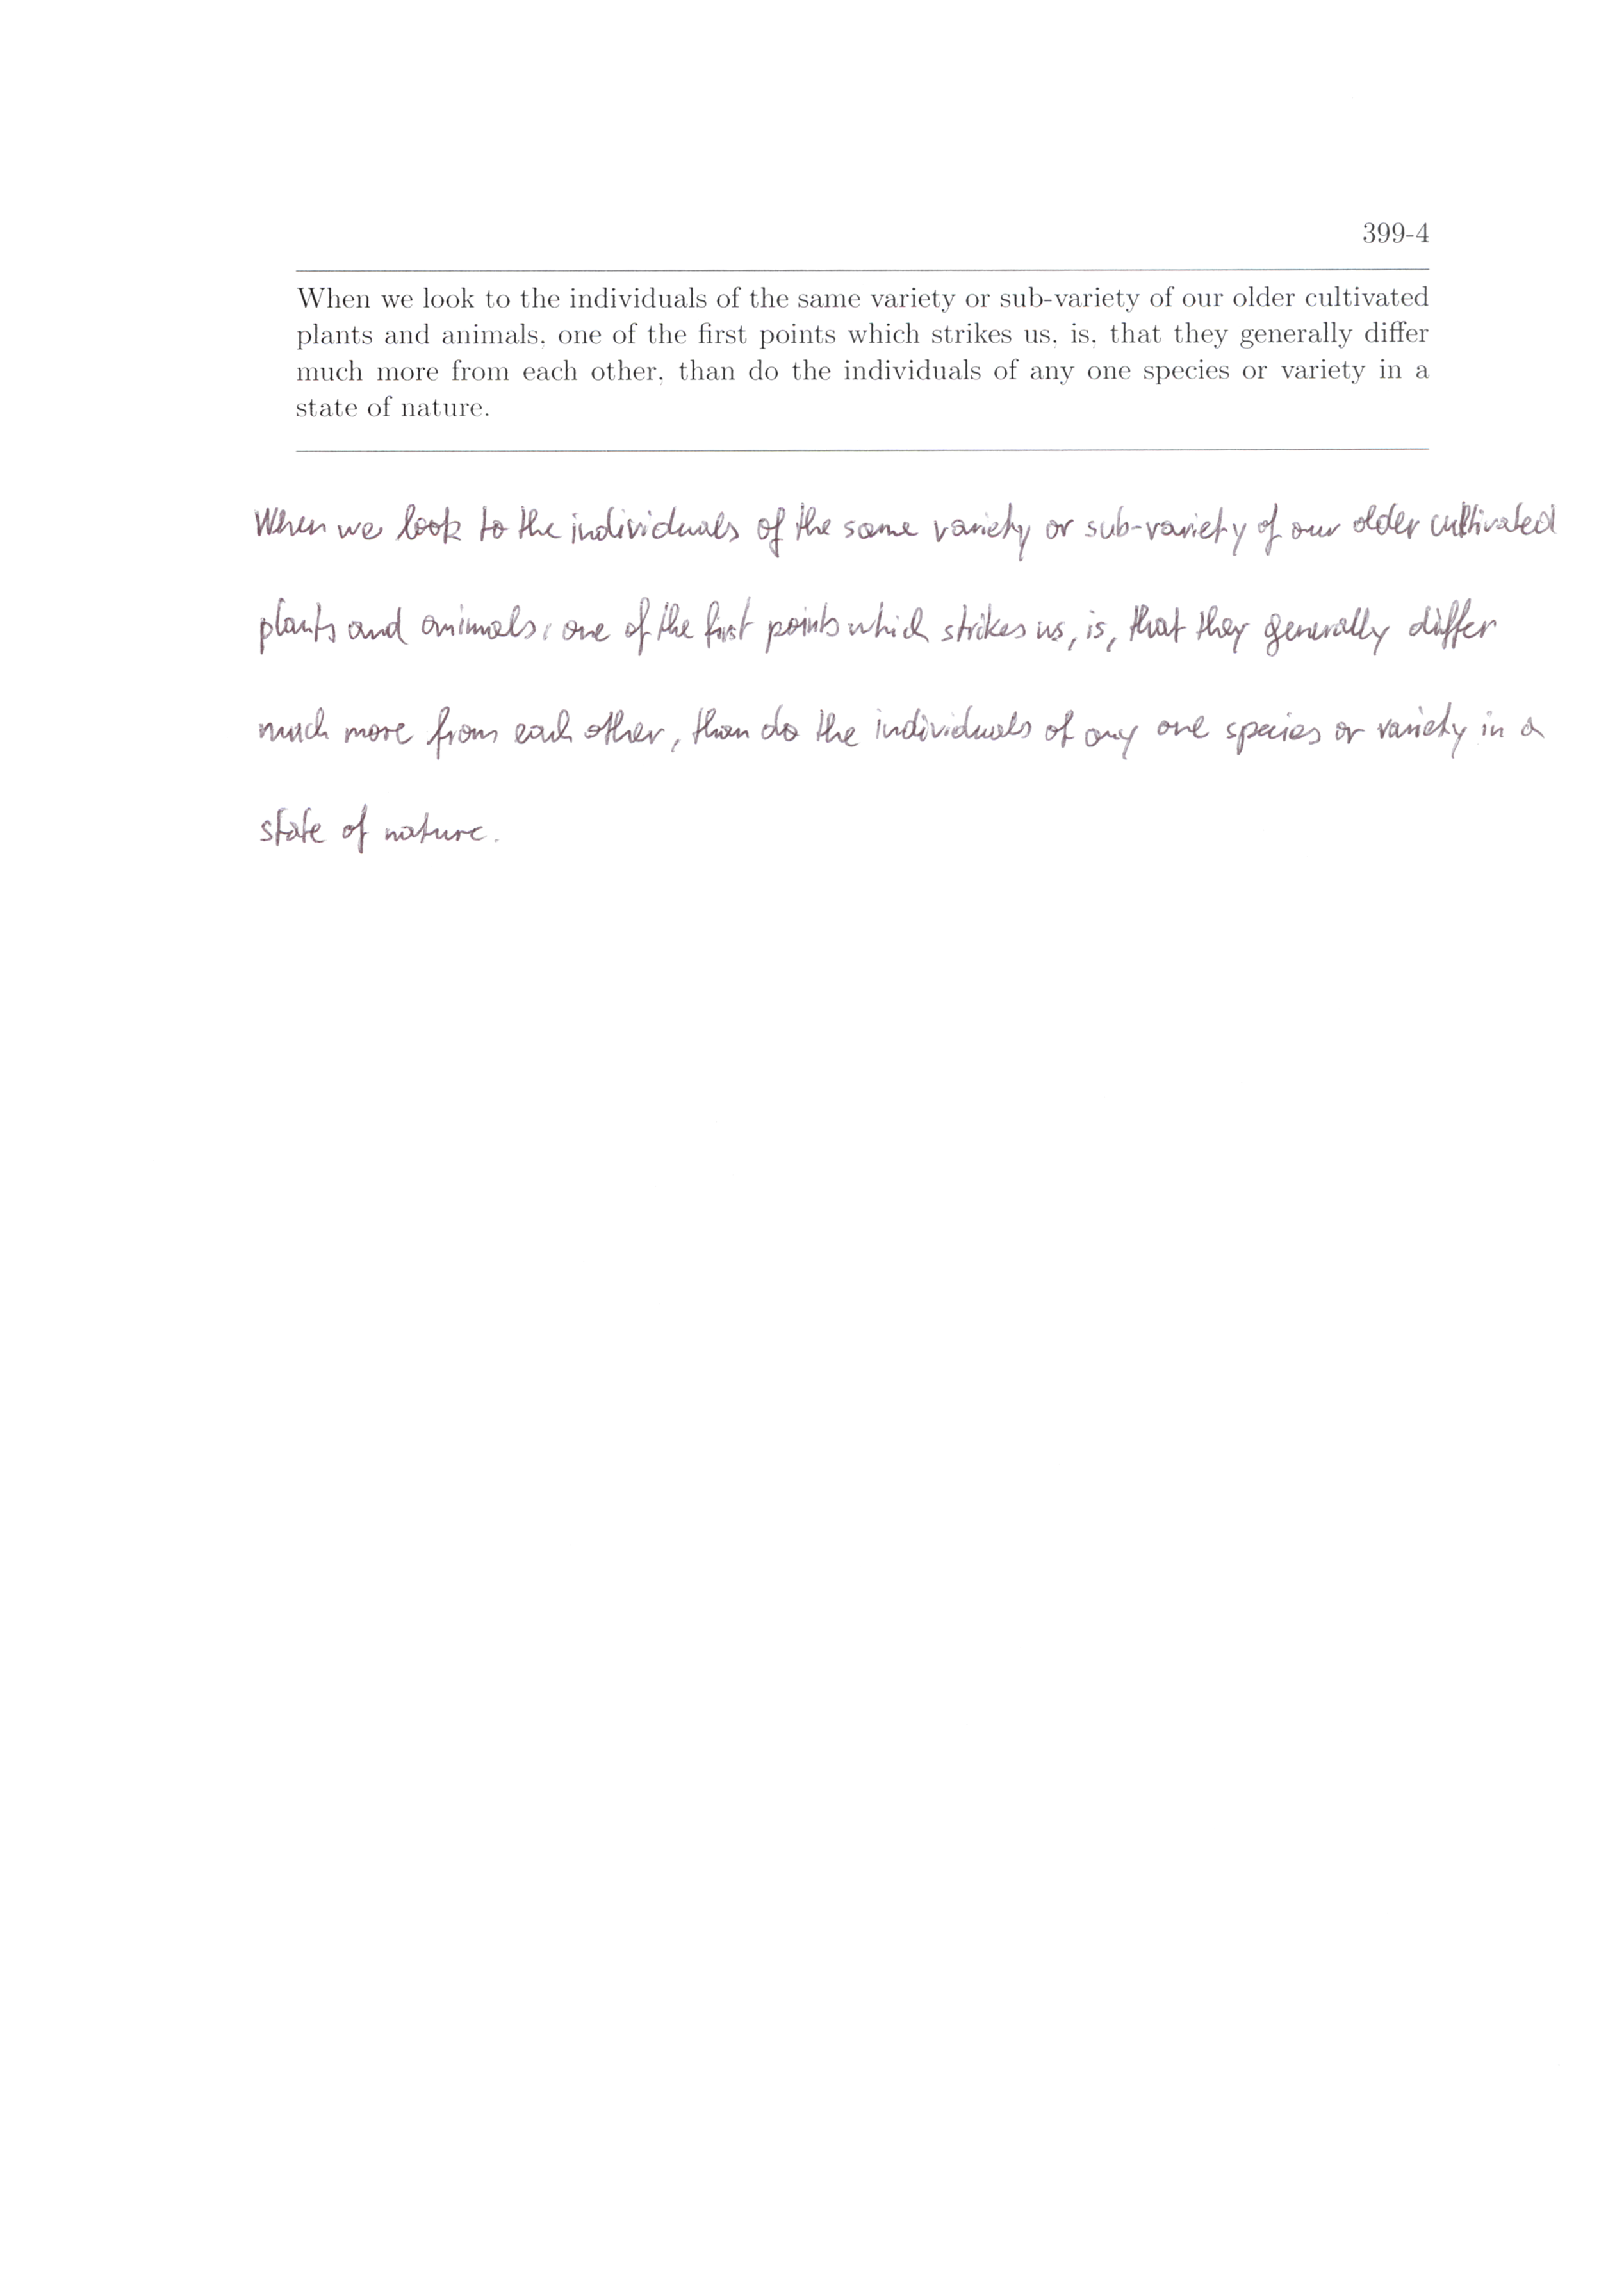 399-4
When we look to the individuals of the same variety or sub-variety of our older cultivated
plants and animals, one of the first points which strikes us, is, that they generally differ
much more from each other, than do the individuals of any one species or variety in a
state of nature.
When we look to the individuals of the same variety or sub-variety of our older cultivated
plants and animals, one of the first points which strikes us, is, that they generally differ
much more from each other, than do the individuals of any one species or variety in a
state of nature.